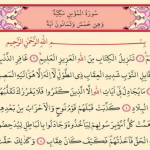 سُورَةُ الْمُؤْمِنِ مَكِّيَّةٌ
وَهِيَ خَمْسٌ وَثَمَانُونَ آيَةً
بِسْمِ اللّٰهِ الرَّحْمٰنِ الرَّحِيمِ
حٰمٓ تَنْزِيلُ الْكِتَابِ مِنَ اللّٰهِ الْعَزِيزِ الْعَلِيمِ غَافِرِ الذَّنْبِ
وَقَابِلِ التَّوْبِ شَدِيدِ الْعِقَابِ ذِي الطَّوْلِ لَا إِلٰهَ إِلَّا هُوَ إِلَيْهِ الْمَصِيرُ
مَا يُجَادِلُ فِي آيَاتِ اللّٰهِ إِلَّا الَّذِينَ كَفَرُوا فَلَا يَغْرُرْكَ تَقَلُّبُهُمْ فِي
الْبِلَادِ كَذَّبَتْ قَبْلَهُمْ قَوْمُ نُوحٍ وَالْأَحْزَابُ مِنْ بَعْدِهِمْ وَهَمَّتْ
كُلُّ أُمَّةٍ بِرَسُولِهِمْ لِيَأْخُذُوهُ وَجَادَلُوا بِالْبَاطِلِ لِيُدْحِضُوا بِهِ
الْحَقَّ فَأَخَذْتُهُمْ فَكَيْفَ كَانَ عِقَابِ